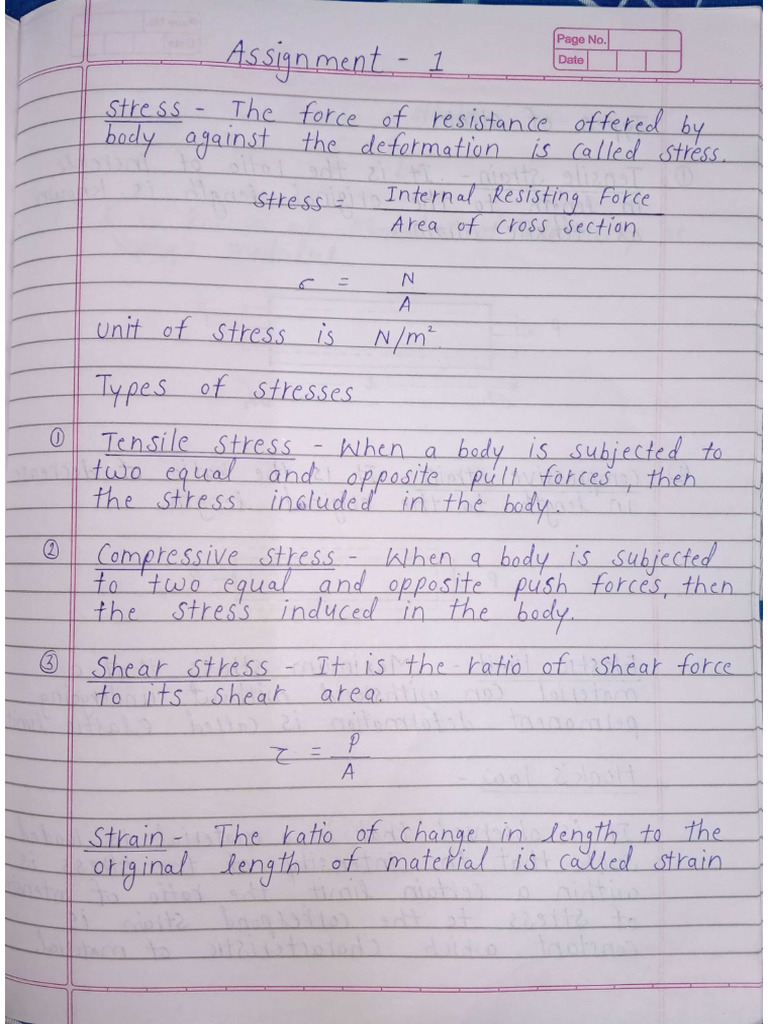 Page No.
Date
Assignment - 1
Stress - The force of resistance offered by
body against the deformation is called stress.
Stress = Internal Resisting Force
Area of cross section
σ = N
A
unit of stress is N/m².
Types of stresses
① Tensile stress - When a body is subjected to
two equal and opposite pull forces, then
the stress included in the body.
② Compressive stress - When a body is subjected
to two equal and opposite push forces, then
the stress induced in the body.
③ Shear stress - It is the ratio of shear force
to its shear area.
τ = P
A
Strain - The ratio of change in length to the
original length of material is called strain